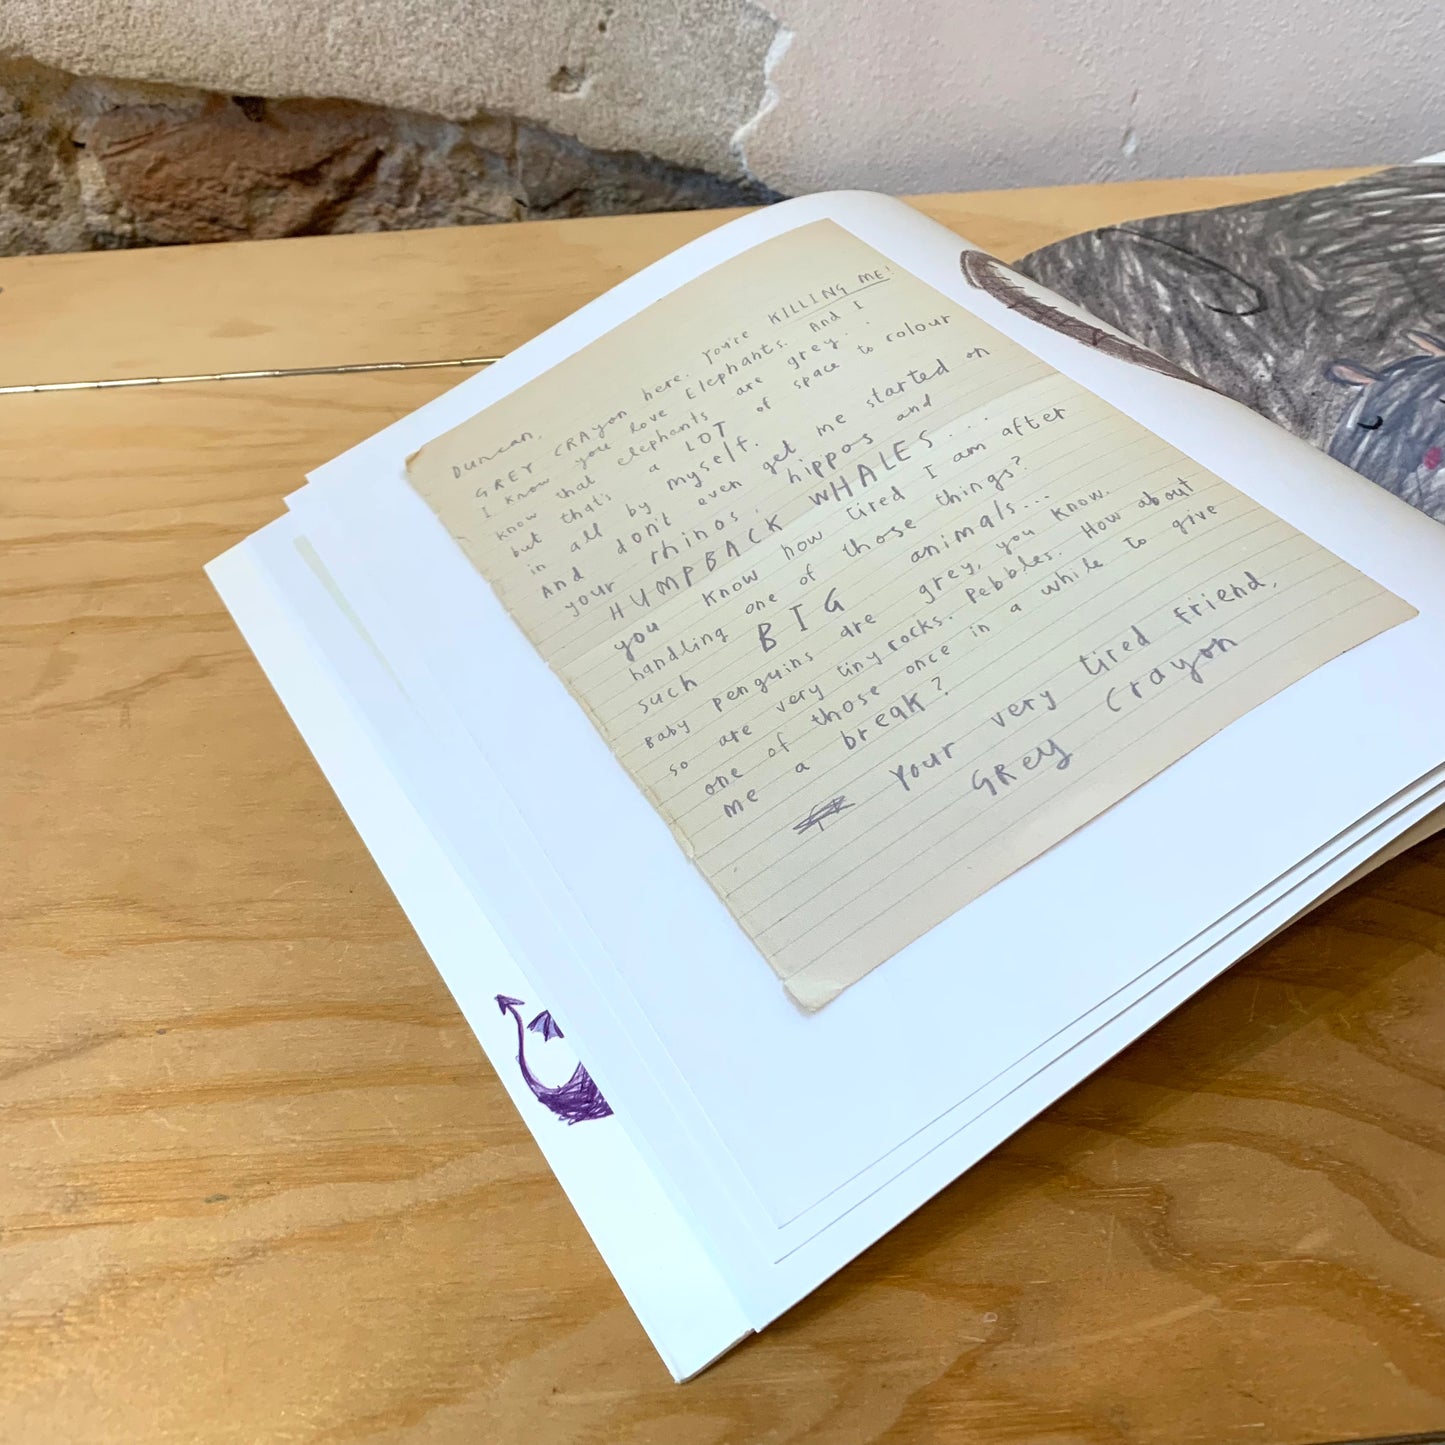 Duncan,
GREY CRAyon here. You're KILLING ME!
I know you love Elephants. And I
know that elephants are grey..
but that's a LOT of space to colour
in all by myself.
And don't even get me started on
your rhinos, hippos and
HUMPBACK WHALES...
you know how tired I am after
handling one of those things?
such BIG animals...
Baby penguins are grey, you know.
so are very tiny rocks. Pebbles. How about
one of those once in a while to give
me a break?
Your very tired friend,
GREy Crayon